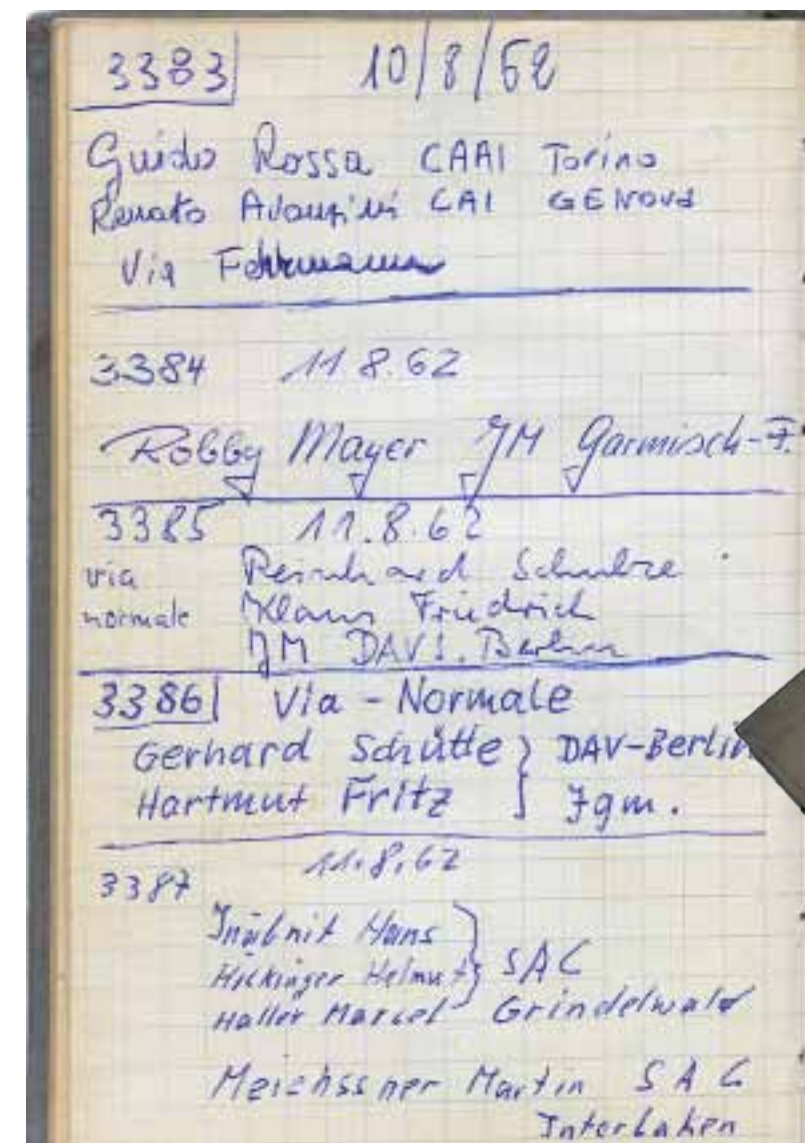 3383 10/8/62
Guido Rossa CAAI Torino
Renato Avanzini CAI GENOVA
Via Fehrmann
3384 11 8.62
Robby Mayer JM Garmisch-P.
3385 11.8.62
via Reinhard Schulze
normale Klaus Friedrich
JM DAV S. Berlin
3386 Via - Normale
Gerhard Schütte } DAV-Berlin
Hartmut Fritz } Jgm.
11.8.62
3387
Inäbnit Hans
Helmut } SAC
Haller Marcel Grindelwald
Meichssner Martin SAC
Interlaken